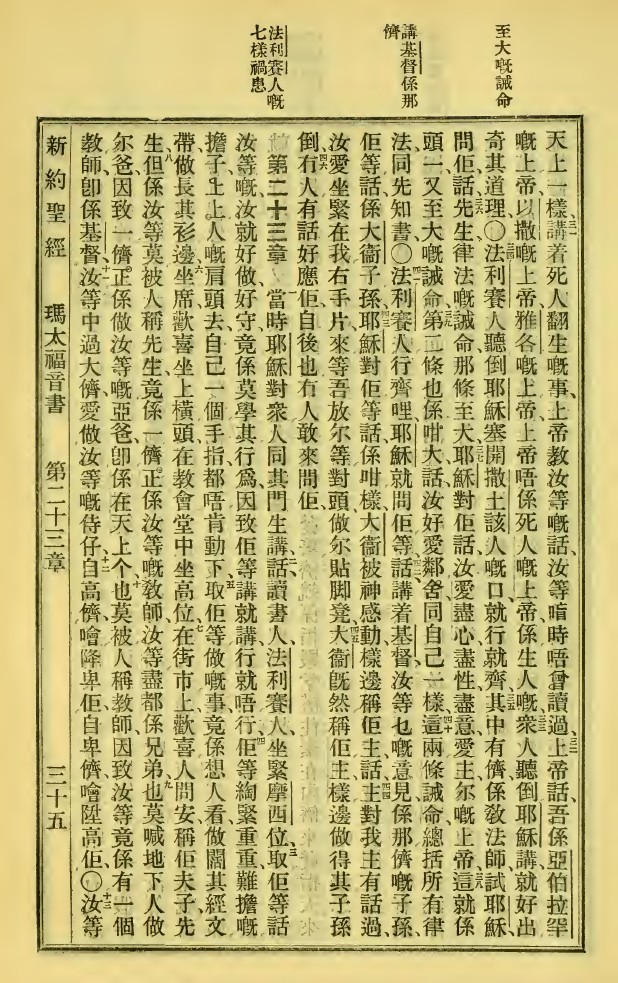 至大嘅誡命
講基督係那儕
法利賽人嘅七樣禍患
天上一樣講着死人翻生嘅事上帝教汝等嘅話汝等喑時唔曾讀過上帝話吾係亞伯拉罕
嘅上帝以撒嘅上帝雅各嘅上帝上帝唔係死人嘅上帝係生人嘅衆人聽倒耶穌講就好出
奇其道理〇法利賽人聽倒耶穌塞開撒土該人嘅口就行就齊其中有儕係教法師試耶穌
問佢話先生律法嘅誡命那條至大耶穌對佢話汝愛盡心盡性盡意愛主尔嘅上帝這就係
頭一又至大嘅誡命第二條也係咁大話汝好愛鄰舍同自己一樣這兩條誡命總括所有律
法同先知書〇法利賽人行齊哩耶穌就問佢等話講着基督汝等乜嘅意見係那儕嘅子孫
佢等話係大衞子孫耶穌對佢等話係咁樣大衞被神感動樣邊稱佢主話主對我主有話過
汝愛坐緊在我右手片來等吾放尔等對頭做尔貼脚凳大衞旣然稱佢主樣邊做得其子孫
倒冇人有話好應佢自後也冇人敢來問佢
第二十三章 當時耶穌對衆人同其門生講話讀書人法利賽人坐緊摩西位取佢等話
汝等嘅汝就好做好守竟係莫學其行爲因致佢等講就講行就唔行佢等綯緊重重難擔嘅
擔子上上人嘅肩頭去自己一個手指都唔肯動下取佢等做嘅事竟係想人看做闊其經文
帶做長其衫邊坐席歡喜坐上橫頭在教會堂中坐高位在街市上歡喜人問安稱佢夫子先
生但係汝等莫被人稱先生竟係一儕正係汝等嘅教師汝等盡都係兄弟也莫喊地下人做
尔爸因致一儕正係做汝等嘅亞爸卽係在天上个也莫被人稱教師因致汝等竟係有一個
教師卽係基督汝等中過大儕愛做汝等嘅侍仔自高儕噲降卑佢自卑儕噲陞高佢〇汝等
新約聖經 瑪太福音書 第二十三章 三十五